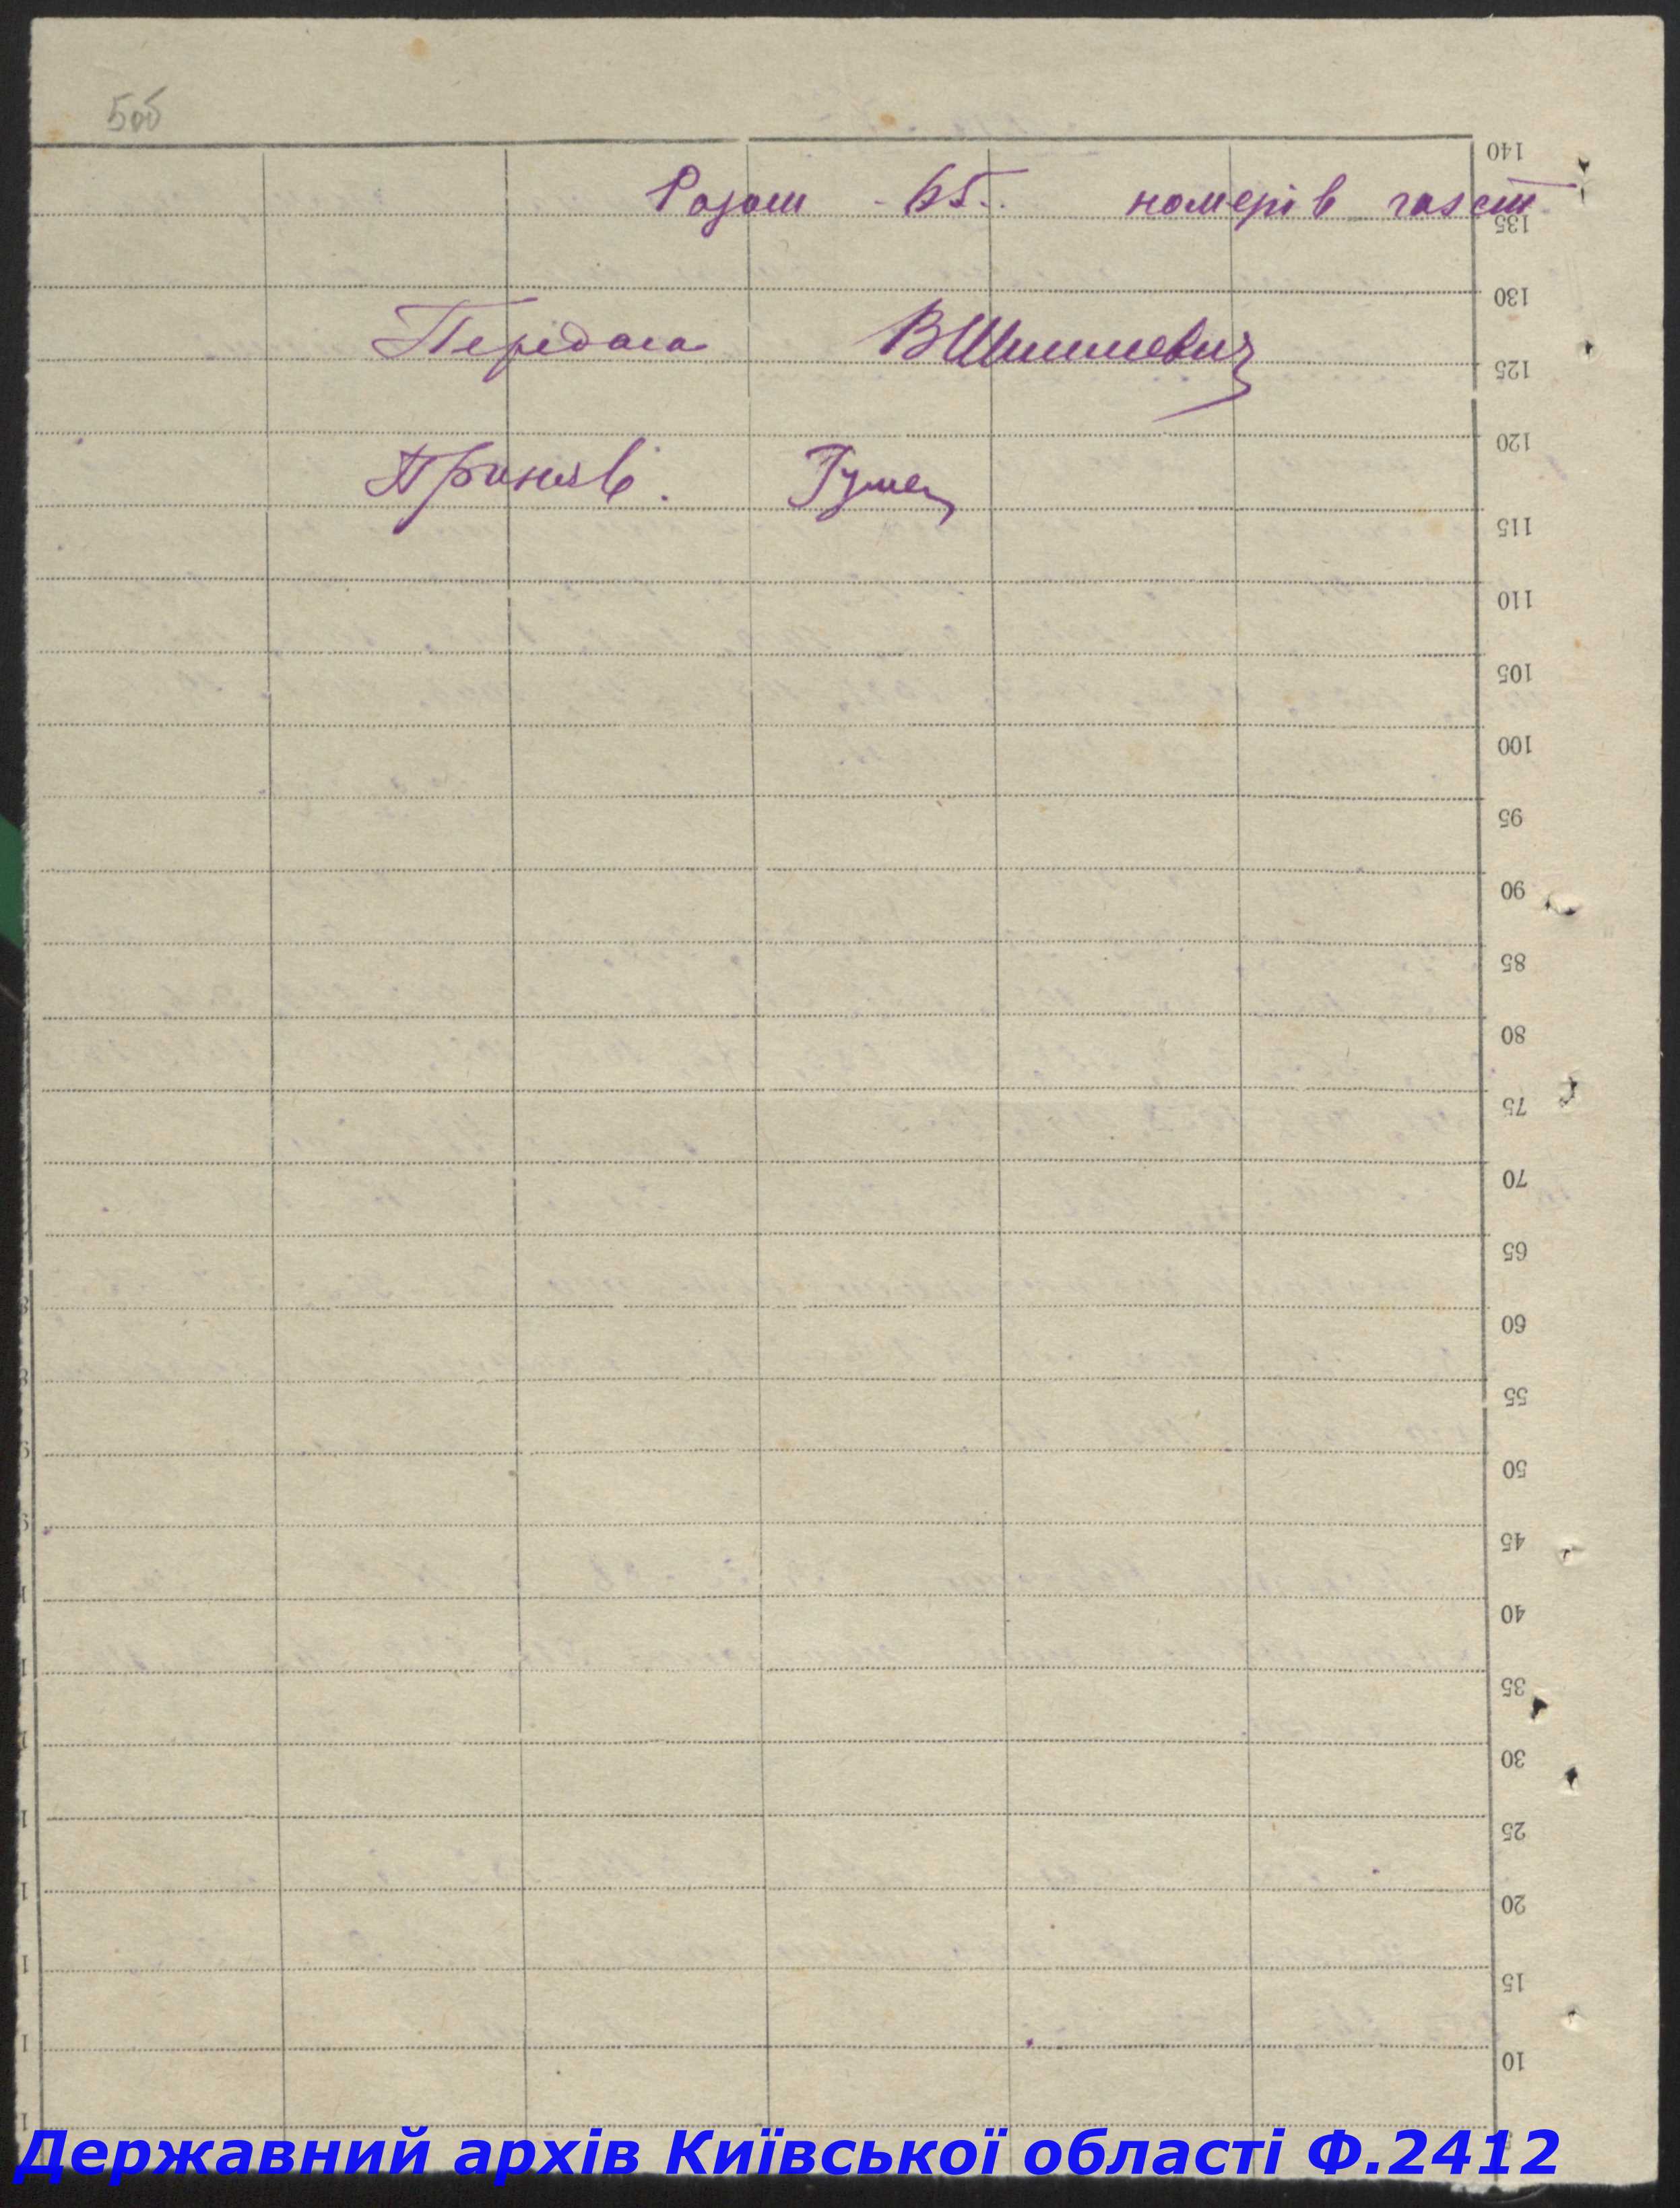 5об
140
Разом - 65.. номерів газет
135
130
Передала ВШишкевич
125
120
Приняв.
115
110
105
100
95
90
85
80
75
70
65
60
55
50
45
40
35
30
25
20
15
10
Державний архів Київської області Ф.2412